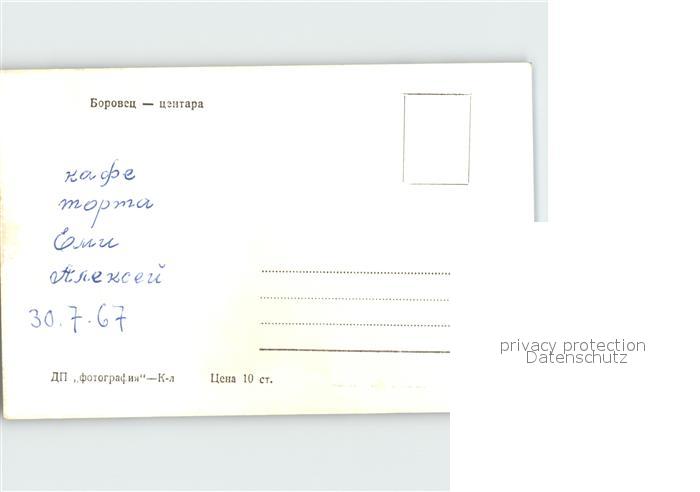 Боровец — центара
кафе
торта
Еми
Алексей
30.7.67
ДП „фотография“—К-л Цена 10 ст.
privacy protection
Datenschutz